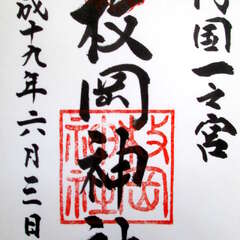 内国一之宮
枚岡神社
成十九年六月三日
枚岡
神社